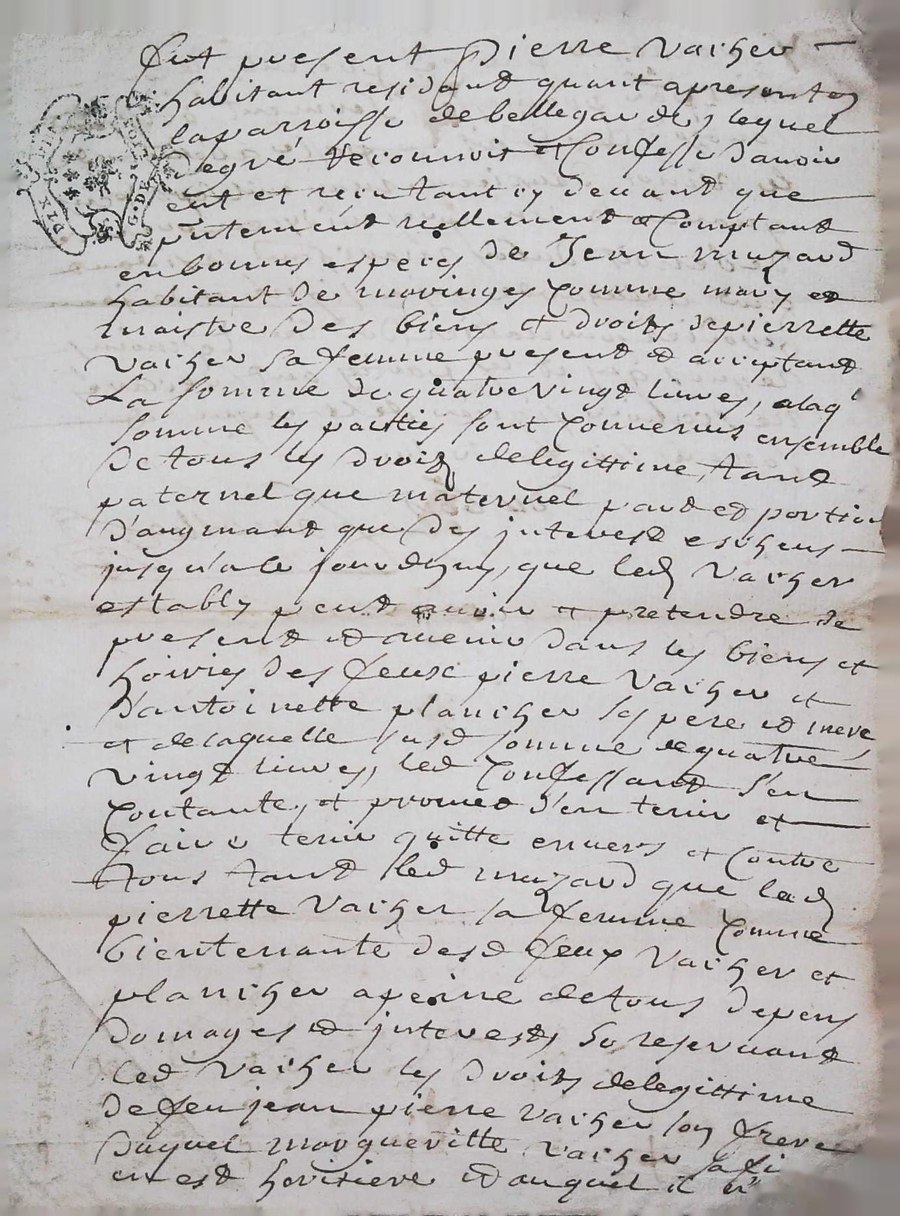 fut present Pierre Vacher
habitant residand quant apresent en
laparroisse de bellegarde, lequel
degré reconnoit et Confesse davoir
eut et reçu tant cy devant que
p̃ntement réellement et Comptant
enbonnes especes de Jean muzard
habitant de moringes Comme mary et
maistre des biens et droits depierrette
Vacher sa femme present et acceptand
La somme de quatre vingt livres, alaq̃
somme les parties sont Convenues ensemble
de tous les droitz delegittime, tand
paternel que maternel part et portion
d'augmant que des jnterest escheus
jusqu'a le jourdhuy, que led Vacher
estably peut avoir et pretendre de
present et avenir dans les biens et
hoiries des feux pierre Vacher et
d'antoinette plancher ses pere et mere
et delaquelle susd somme de quatre
vingt livres, led Confessant s'en
Contante, et promet d'en tenir et
faire tenir quitte envers et Contre
tous tand led muzard que lad
pierrette Vacher sa femme Comme
bientenante desd feux Vacher et
plancher apeine de tous depens
domages et jnterests se reservant
led Vacher les droits delegittime
de feu jean pierre Vacher son frere
duquel morgueritte Vacher sa fi
en est heritiere et auquel il en
DIX
G. DE